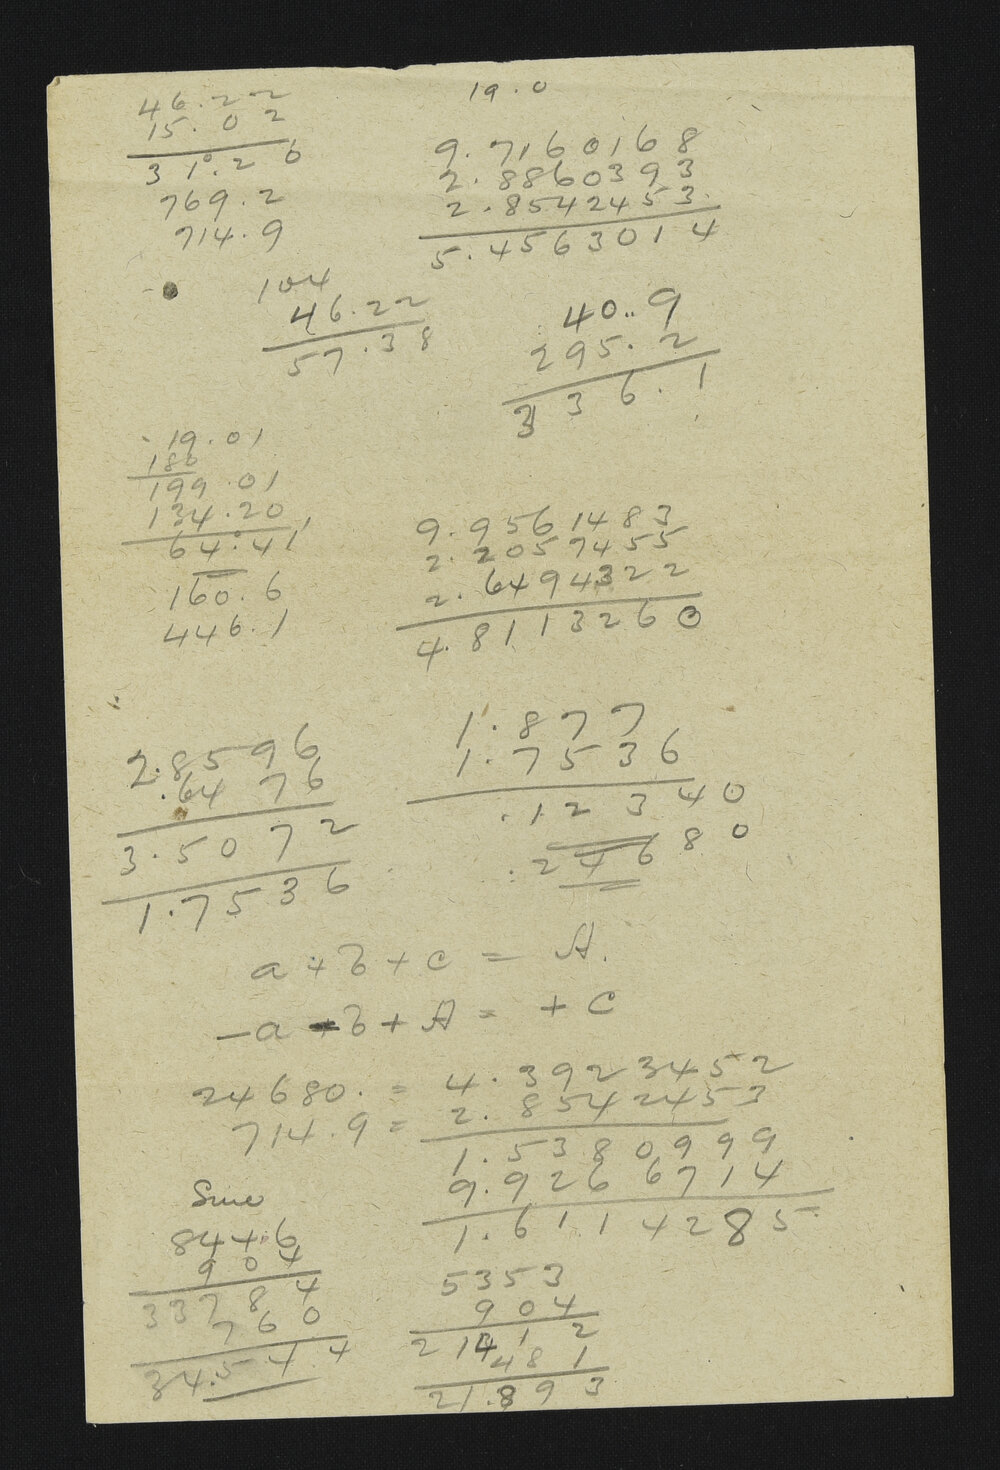 46.22
15.02
31°.20
769.2
714.9
104
46.22
57.38
19.0
9.7160168
2.8860393
2.8542453
5.4563014
40..9
295.2
336.1
19.01
180
199.01
134.20
64°.41'
160.6
446.1
9.9561483
2.2057455
2.6494322
4.8113260
2.8596
.6476
3.5072
1.7536
1.877
1.7536
.12340
.24680
a + b + c = A.
- a - b + A = + C
24680. = 4.3923452
714.9 = 2.8542453
1.5380999
9.9266714
1.6114285
Sine
844.6
904
33784
760
34.544
5353
904
21412
481
21.893